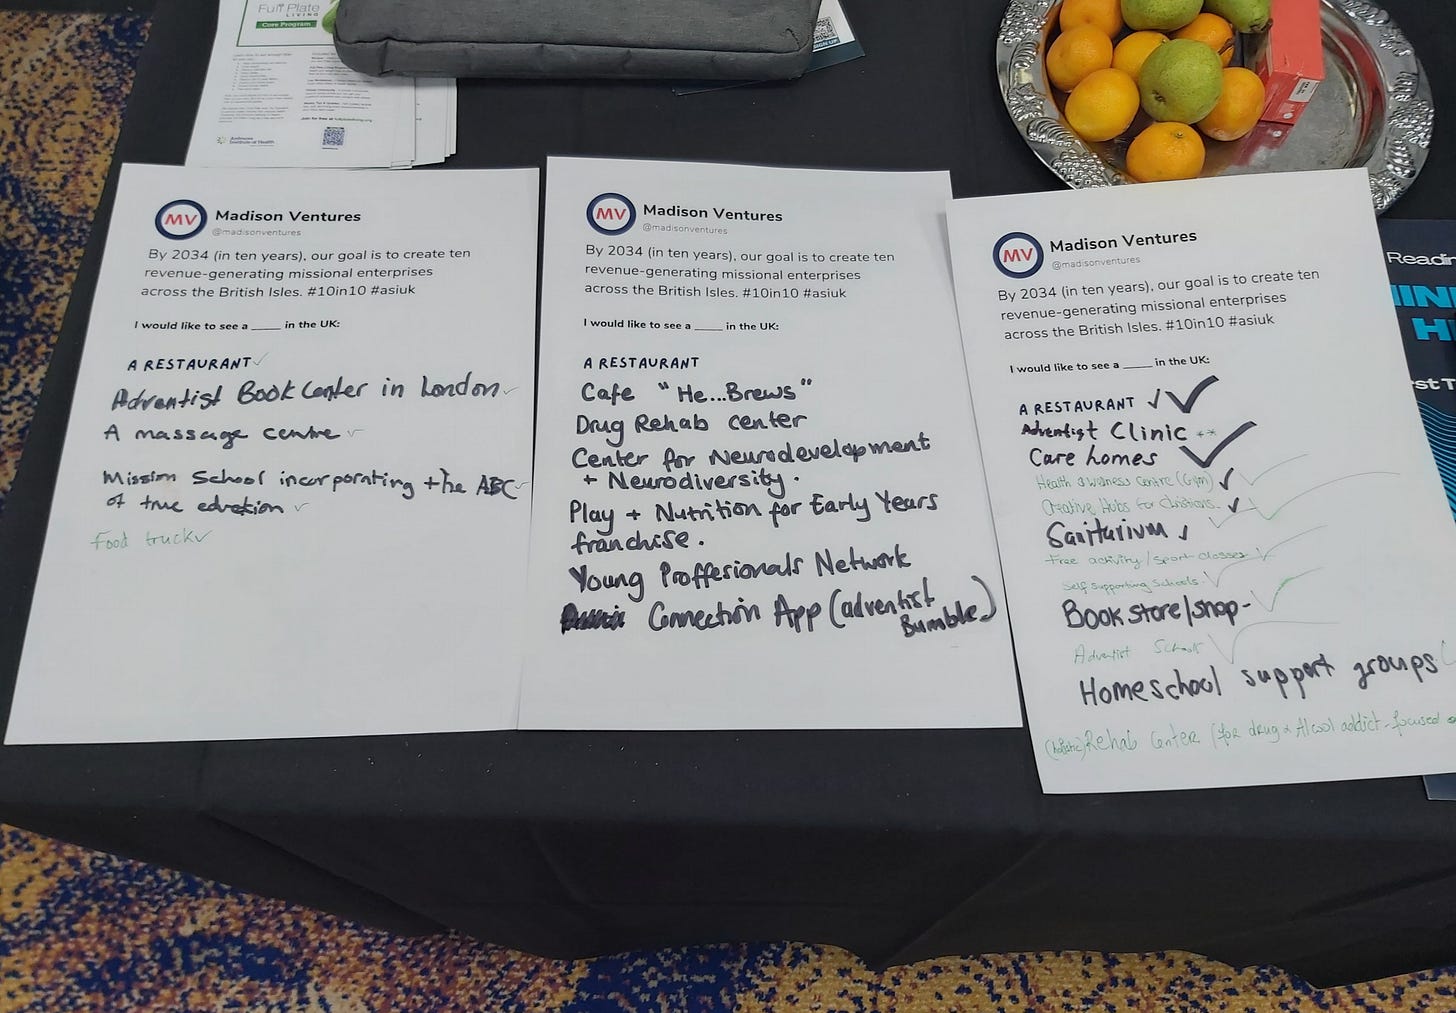 Full Plate
LIVING
Core Program
Join for free at fullplateliving.org
Ardmore
Institute of Health
SIGN UP
MV Madison Ventures
@madisonventures
By 2034 (in ten years), our goal is to create ten
revenue-generating missional enterprises
across the British Isles. #10in10 #asiuk
I would like to see a _____ in the UK:
A RESTAURANT ✓
Adventist Book Center in London ✓
A massage centre ✓
Mission School incorporating the ABC ✓
of true education ✓
Food truck ✓
MV Madison Ventures
@madisonventures
By 2034 (in ten years), our goal is to create ten
revenue-generating missional enterprises
across the British Isles. #10in10 #asiuk
I would like to see a _____ in the UK:
A RESTAURANT
Cafe "He...Brews"
Drug Rehab center
Center for Neurodevelopment
+ Neurodiversity.
Play + Nutrition for Early Years
franchise.
Young Proffesionals Network
Connection App (adventist
Bumble)
MV Madison Ventures
@madisonventures
By 2034 (in ten years), our goal is to create ten
revenue-generating missional enterprises
across the British Isles. #10in10 #asiuk
I would like to see a _____ in the UK:
A RESTAURANT ✓ ✓
Adventist Clinic **
Care homes ✓
Health & Wellness Centre (Gym) ✓ ✓
Creative Hubs for Christians ✓ ✓
Sanitarium ✓ ✓
Free activity/sport classes ✓
Self supporting Schools ✓
Book store/shop- ✓
Adventist Schools ✓
Homeschool support groups
(holistic) Rehab Center (for drug & Alcool addict-focused
Readin
rst T